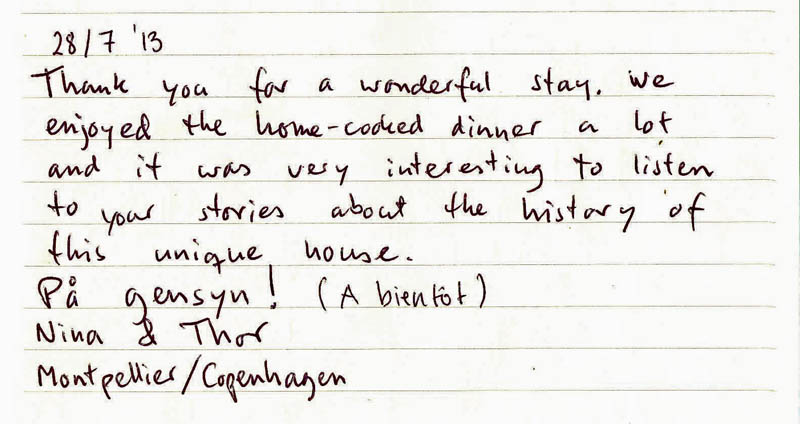 28/7 '13
Thank you for a wonderful stay. We
enjoyed the home-cooked dinner a lot
and it was very interesting to listen
to your stories about the history of
this unique house.
På gensyn! (A bientôt)
Nina & Thor
Montpellier/Copenhagen